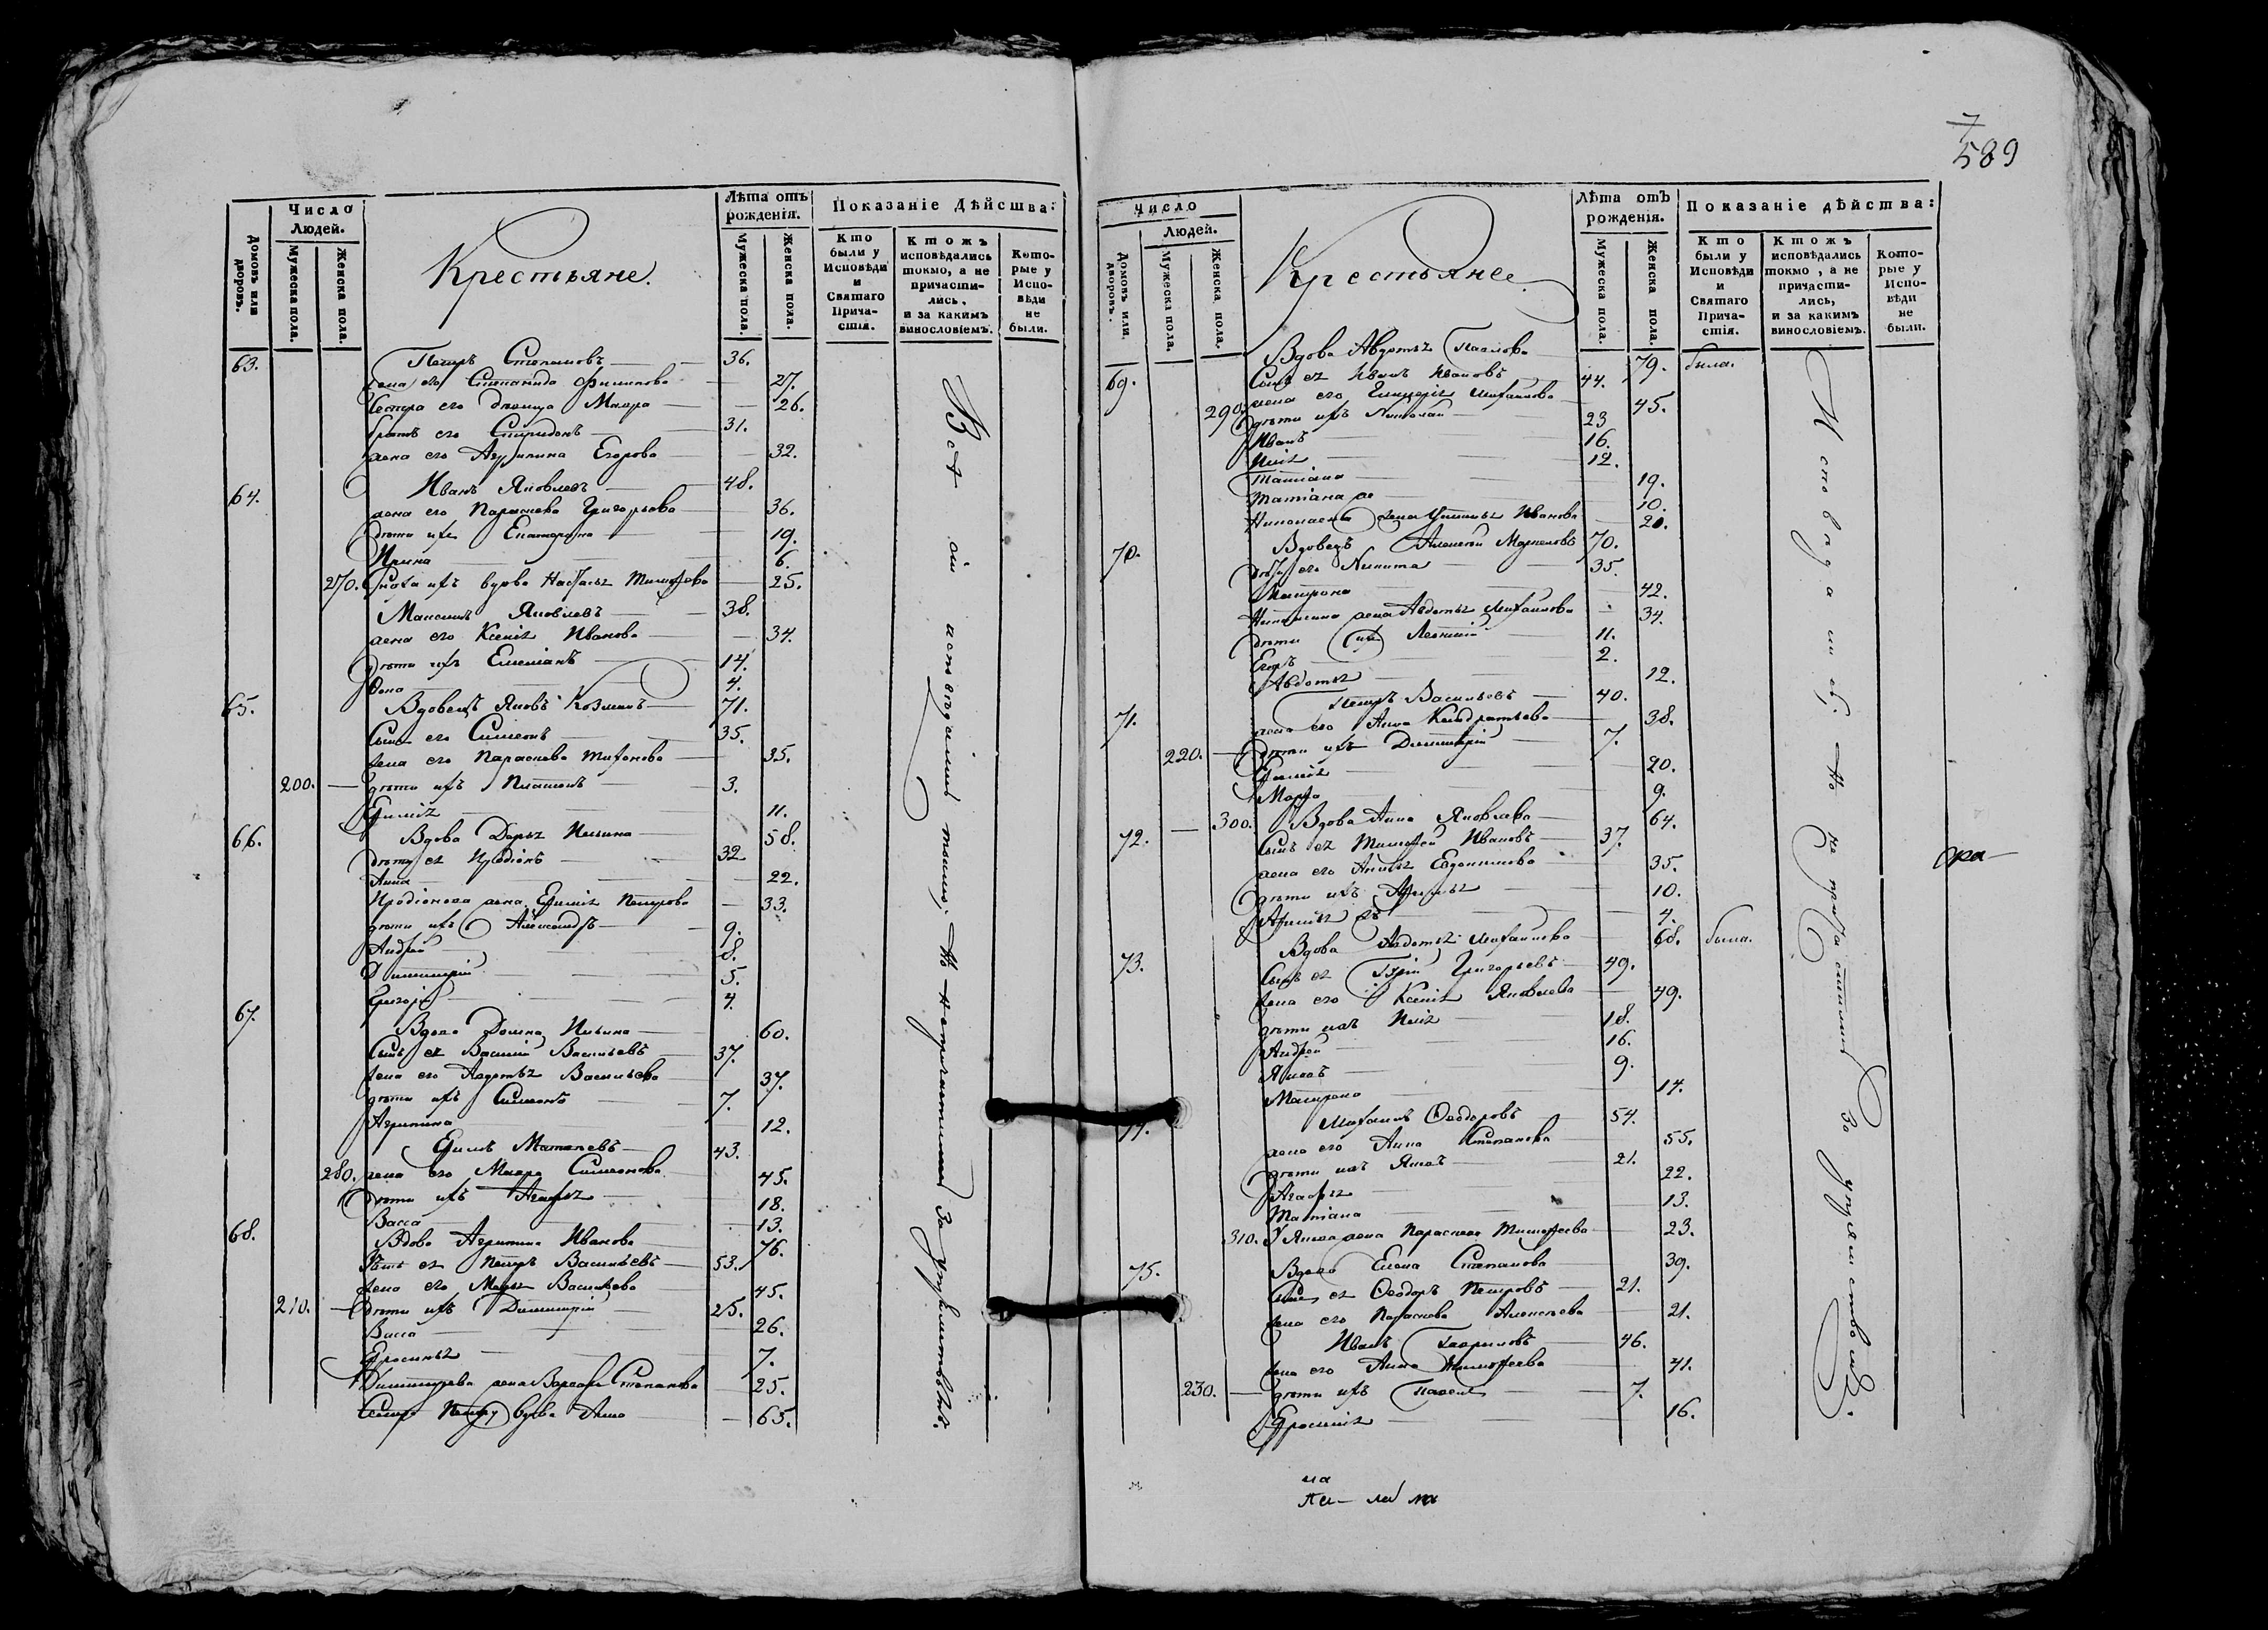 Число Людей.
Домовъ или дворовъ.
Мужеска пола.
Женска пола.
Крестьяне.
Лѣта отъ рожденія.
Мужеска пола.
Женска пола.
Показаніе Дѣйства:
Кто были у Исповѣди и Святаго Причастія.
Ктожъ исповѣдались токмо, а не причастились, и за какимъ винословіемъ.
Которые у Исповѣди не были.
63. Петръ Степановъ 36.
жена его Степанида Филипова 27.
Сестра его девица Мавра 26.
братъ его Спиридонъ 31.
жена его Агрипина Егорова 32.
64. Иванъ Яковлевъ 48.
жена его Параскева Григорьева 36.
дѣти ихъ Екатерина 19.
Ирина 6.
270. Сноха ихъ вдова Настасья Тимофеева 25.
Максимъ Яковлевъ 38.
жена его Ксенія Иванова 34.
дѣти ихъ Емеліанъ 14.
Фока 4.
65. Вдовецъ Яковъ Козминъ 71.
Сынъ его Симеонъ 35.
жена его Параскева Тихонова 35.
200. дѣти ихъ Платонъ 3.
Ефимія 11.
66. Вдова Дарья Ильина 58.
дѣти ея Иродіонъ 32
Анна 22.
Иродіонова жена Ефимія Петрова 33.
дѣти ихъ Александръ 9.
Андрей 8.
Димитрій 5.
Григорій 4.
67. Вдова Домна Ильина 60.
Сынъ ея Василій Васильевъ 37.
жена его Авдотья Васильева 37.
дѣти ихъ Симеонъ 7.
Агрипина 12.
Ефимъ Матвеевъ 43.
280. жена его Мавра Симеонова 45.
дѣти ихъ Агафья 18.
Васса 13.
68. Вдова Агрипина Иванова 76.
Сынъ ея Петръ Васильевъ 53.
жена его Марья Васильева 45.
210. дѣти ихъ Димитрій 25.
Васса 26.
Ефросинья 7.
Димитрева жена Варвара Степанова 25.
Сестра Петру вдова Анна 65.
Всѣ сіи исповедались токмо; Но Непричастились За упразднениемъ
7
589
Число Людей.
Домовъ или дворовъ.
Мужеска пола.
Женска пола.
Крестьяне.
Лѣта отъ рожденія.
Мужеска пола.
Женска пола.
Показаніе дѣйства:
Кто были у Исповѣди и Святаго Причастія.
Ктожъ исповѣдались токмо, а не причастились, и за какимъ винословіемъ.
Которые у Исповѣди не были.
69. Вдова Авдотья Павлова 79. была.
Сынъ ея Иванъ Ивановъ 44.
жена его Гликерія Михайлова 45.
290. дѣти ихъ Николай 23
Иванъ 16.
Илія 12.
Татіана 19.
Татіана же 10.
Николаева жена Устинья Иванова 20.
70. Вдовецъ Алексей Маркеловъ 70.
дѣти его Никита 35.
Матрона 42.
Никитина жена Авдотья Михайлова 34.
дѣти ихъ Леонтій 11.
Егоръ 2.
Авдотья 12.
71. Петръ Васильевъ 40.
жена его Анна Кондратьева 38.
220. дѣти ихъ Димитрій 7.
Ефимія 20.
Марфа 9.
300. Вдова Анна Яковлева 64.
72. Сынъ ея Тимофей Ивановъ 37.
жена его Анисья Евдокимова 35.
дѣти ихъ 10.
4.
73. Вдова Авдотья Михайлова 68. была.
Сынъ ея Григорьевъ 49.
жена его Ксенія Яковлева 49.
дѣти ихъ Илія 18.
Андрей 16.
Яковъ 9.
Матрона 14.
74. Михаилъ Феодоровъ 54.
жена его Анна Степанова 55.
дѣти ихъ Яковъ 21.
Агафья 22.
Татіана 13.
310. У Якова жена Параскева Тимофеева 23.
75. Вдова Елена Степанова 39.
Сынъ ея Феодоръ Петровъ 21.
жена его Параскева Алексеева 21.
Иванъ Гавриловъ 46.
жена его Анна Тимофеева 41.
230. дѣти ихъ Павелъ 7.
Ефросинія 16.
Исповедались Но не причастились За
ора—